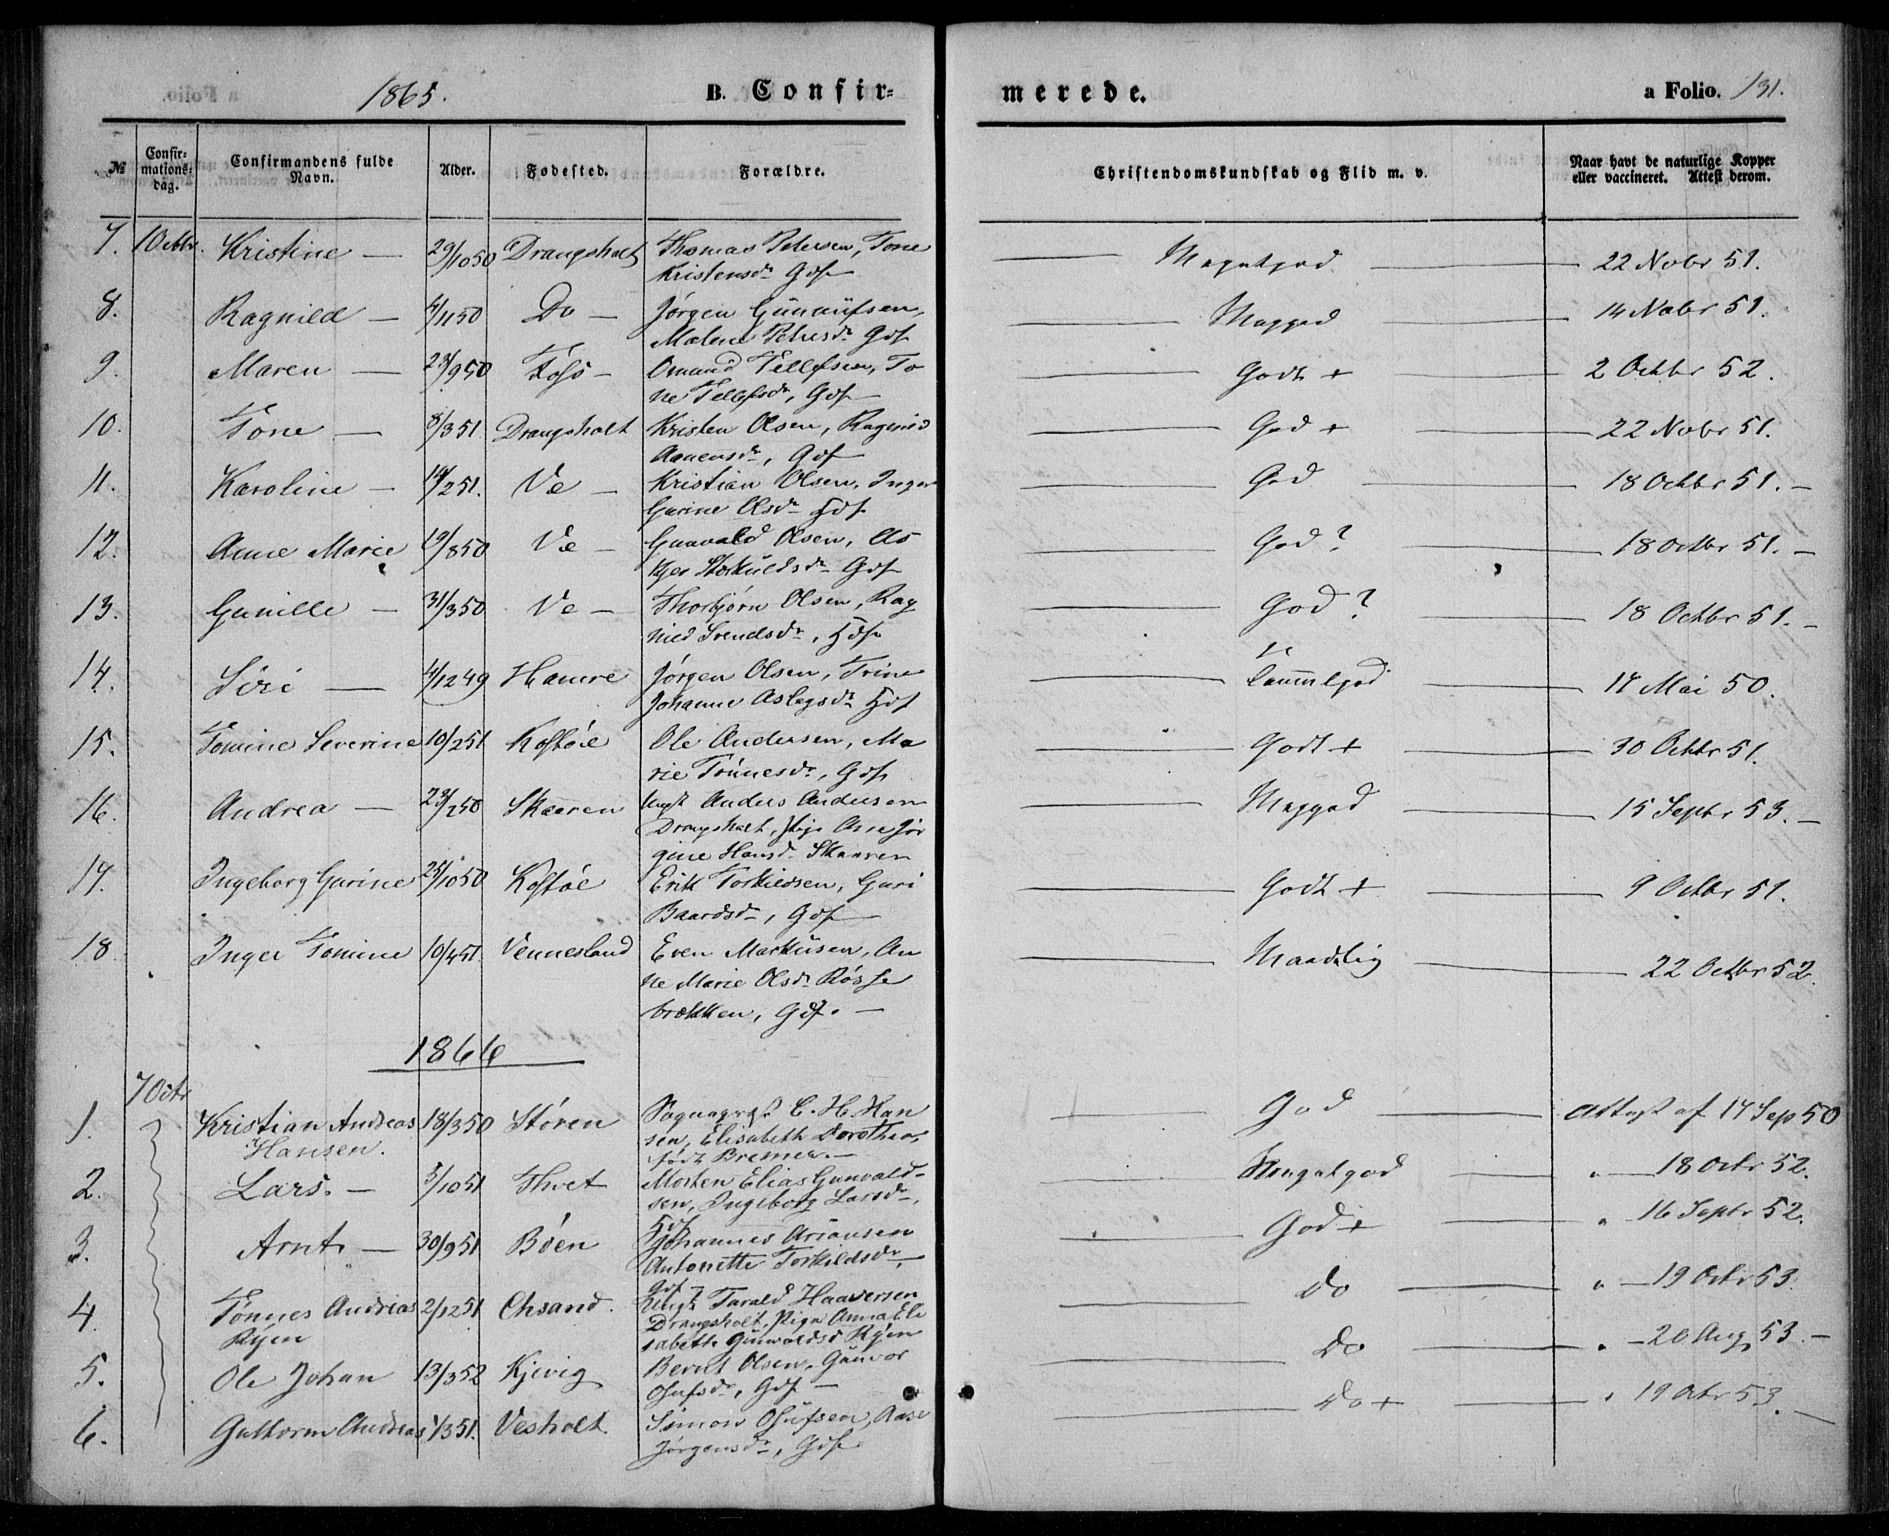 1865.
B. Confir-
merede.
a Folio. 131.
№
Confir-
mations-
dag.
Confirmandens fulde
Navn.
Alder.
Fødested.
Forældre.
Christendomskundskab og Flid m. v.
Naar havt de naturlige Kopper
eller vaccineret. Attest derom.
7. 1 Octbr. Kristine — 29/10 50 Drangsholt Thomas Petersen, Tone
Kristensdr Gdf
Megetgod 22 Nobr 51.
8. Ragnild — 4/11 50 Do — Jørgen Gunnufsen,
Malene Petersdr Gdf
Meggod 14 Nobr 51.
9. Maren — 23/9 50 Foss — Omund Tellefsen, To
ne Tellefsdr, Gdf
Godt + 2 Octbr 52.
10. Tone — 8/3 51. Drangsholt Kristen Olsen, Ragnild
Aanensdr, Gdf
God + 22 Nobr 51.
11. Karoline — 19/2 51. Ve — Kristian Olsen, Inger
Gurine Olsdr Hdf
God 18 Octbr 51. —
12. Anne Marie 19/8 50 Ve — Gunvald Olsen, As
Gdf
God? 18 Octbr 51. —
13. Gunille — 31/3 50 Ve — Thorbjørn Olsen, Rag
nild Svendsdr, Hdf
God? 18 Octbr 51. —
14. Siri — 4/12 49 Hamre Jørgen Olsen, Trine
Johanne Aslagsdr Hdf
Temmelgod 17 Mai 50.
15. Tomine Severine 10/2 51 Kostøl Ole Andersen, Ma
rie Tønnesdr, Gdf
Godt + 30 Octbr 51.
16. Andrea — 23/2 50 Skaaren Ungk Anders Andersen
Drangsholt, Pige Ane Jør
gine Hansd. Skaaren
Meggod 15 Septr 53. —
17. Ingeborg Gurine 25/10 50 Kostøl Erik Torkildsen, Guri
Baardsdr, Gdf —
Godt + 9 Octbr 51.
18. Inger Tomine 10/4 51. Vennesland Even Markusen, An
ne Marie Olsdr Røsse
brekken, Gdf. —
Maadelig 22 Octbr 52.
1866
7 Octr
1. Kristian Andreas 18/3 50 Støren Sognepræst C. H. Han
Hansen. sen, Elisabeth Dorothea,
født Bremer. —
God Attest af 17 Sep 50
2. Lars. — 5/10 51 Thvet Morten Elias Gunvald-
sen, Ingeborg Larsdr,
Hdf
Megetgod " — 18 Octr 52.
3. Arnt — 30/9 51 Bøen Johannes Ariansen
Antonette Torkildsdr,
Gdf —
God + " — 16 Septr 52.
4. Tønnes Andreas 2/12 51 Chsand. Ungk Tarald Haaversen
Ryen Drangsholt, Pige Anna Eli
sabeth Gunvaldsd Ryen
Do " — 19 Octr 53.
5. Ole Johan 13/3 52 Kjevig Bernt Olsen, Gunvor
Olufsdr, Gdf —
Do " — 20 Aug 53. —
6. Guttorm Andreas 1/3 51. Vesholt Simon Olufsen, Aase
Jørgensdr, Gdf
Do + " 19 Octr 53. —